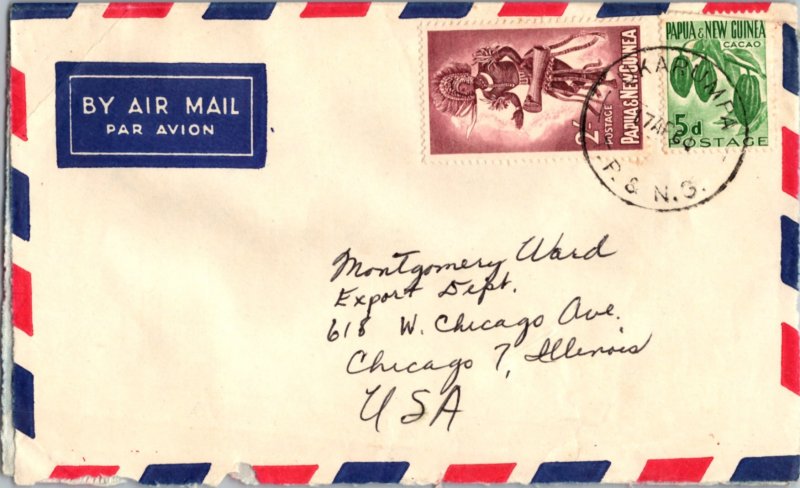 BY AIR MAIL
PAR AVION
2/-
POSTAGE
PAPUA & NEW GUINEA
PAPUA & NEW GUINEA
CACAO
5d
POSTAGE
UKARUMPA
P. & N.G.
Montgomery Ward
Export Dept.
618 W. Chicago Ave.
Chicago 7, Illinois
USA